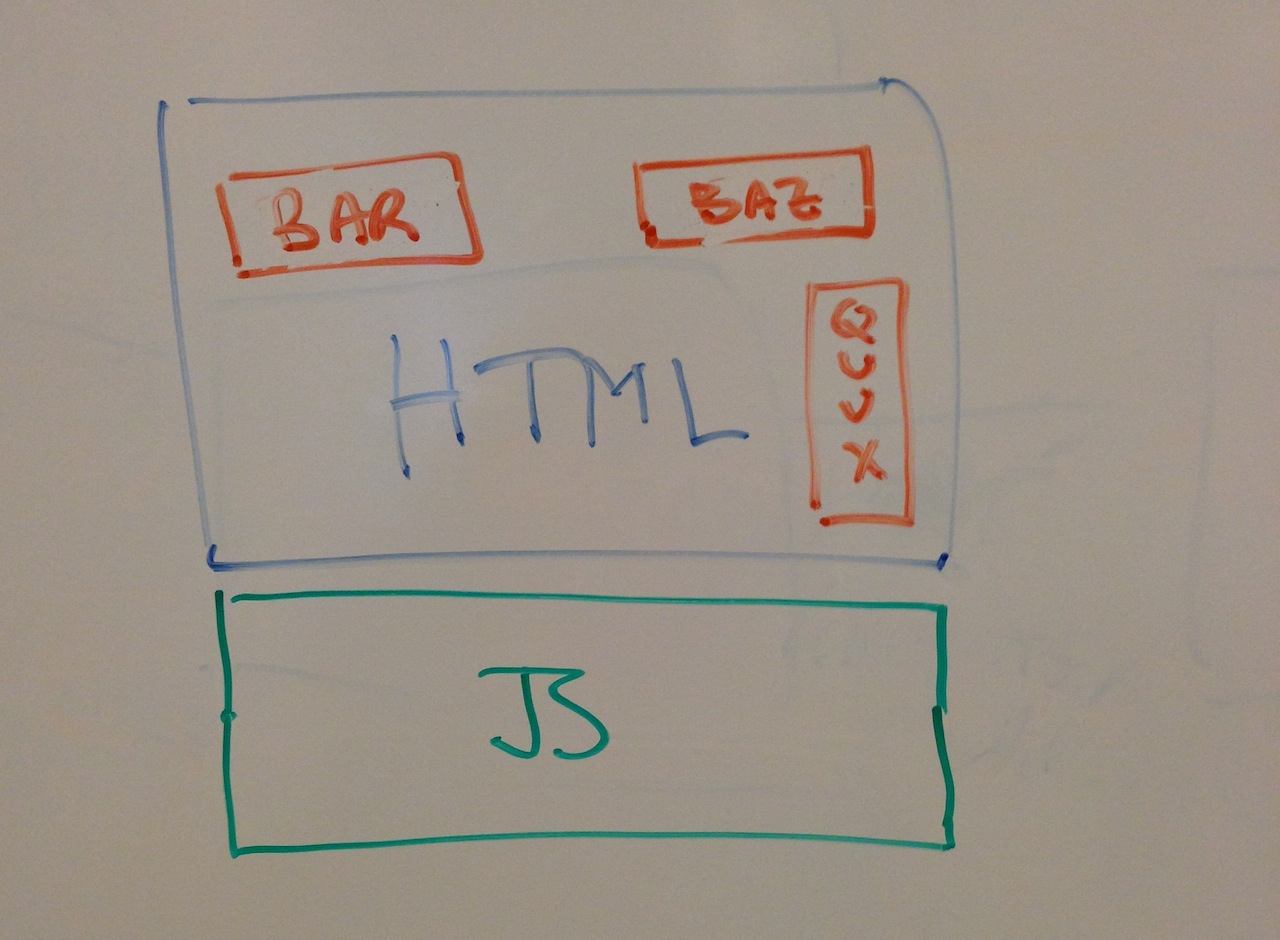 BAR
BAZ
HTML
QUUX
JS